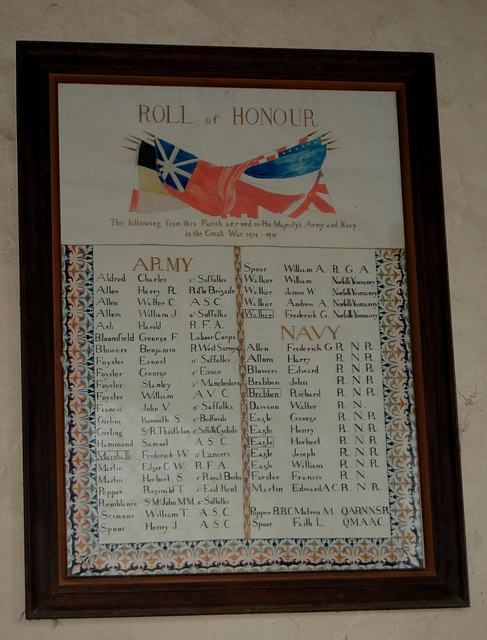 ROLL of HONOUR
The following from this Parish served in His Majestys Army and Navy
in the Great War 1914 - 1918
ARMY
Aldred Charles 2nd Suffolks
Allen Harry R. Rifle Brigade
Allen Walter C. A S C
Allum William J. 6th Suffolks
Ash Harold R.F.A.
Bloomfield George F. Labour Corps
Blowers Benjamin R. West Surreys
Foyster Ernest 11th Suffolks
Foyster George 2nd Essex
Foyster Stanley 2nd Manchesters
Foyster William A V C
Francis John V. Suffolks
Girling Kenneth S Bedfords
Girling S.R. Thistleton Suffolk Cyclists
Hammond Samuel A S C
Marshall Frederick W Lancers
Martin Edgar G W. R.F.A.
Martin Herbert S Royal Berks
Pepper Reginald T East Kent
Remblance S M John M M Suffolks
Scrivens William T A S C
Spoor Henry J. A S C
Spoor William A. R G A
Walker William Norfolk Yeomanry
Walker James W. Norfolk Yeomanry
Walker Andrew A Norfolk Yeomanry
Walker Frederick G Norfolk Yeomanry
NAVY
Allen Frederick G R N R
Allum Harry R N R
Blowers Edward R N R
Brabben John R N R
Brabben Richard R N R
Dawson Walter R N
Eagle George R N R
Eagle Henry R N R
Eagle Herbert R N R
Eagle Joseph R N R
Eagle William R N R
Forster Francis R N
Martin Edward A C R N R
Pepper R.R.C Melvin M QARNNSR
Spoor Faith L QMAAC